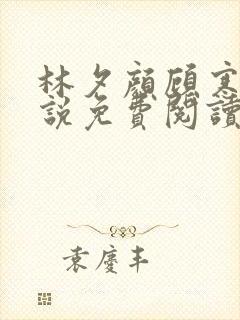 林夕顏顧寒
說免費閱讀
袁慶丰